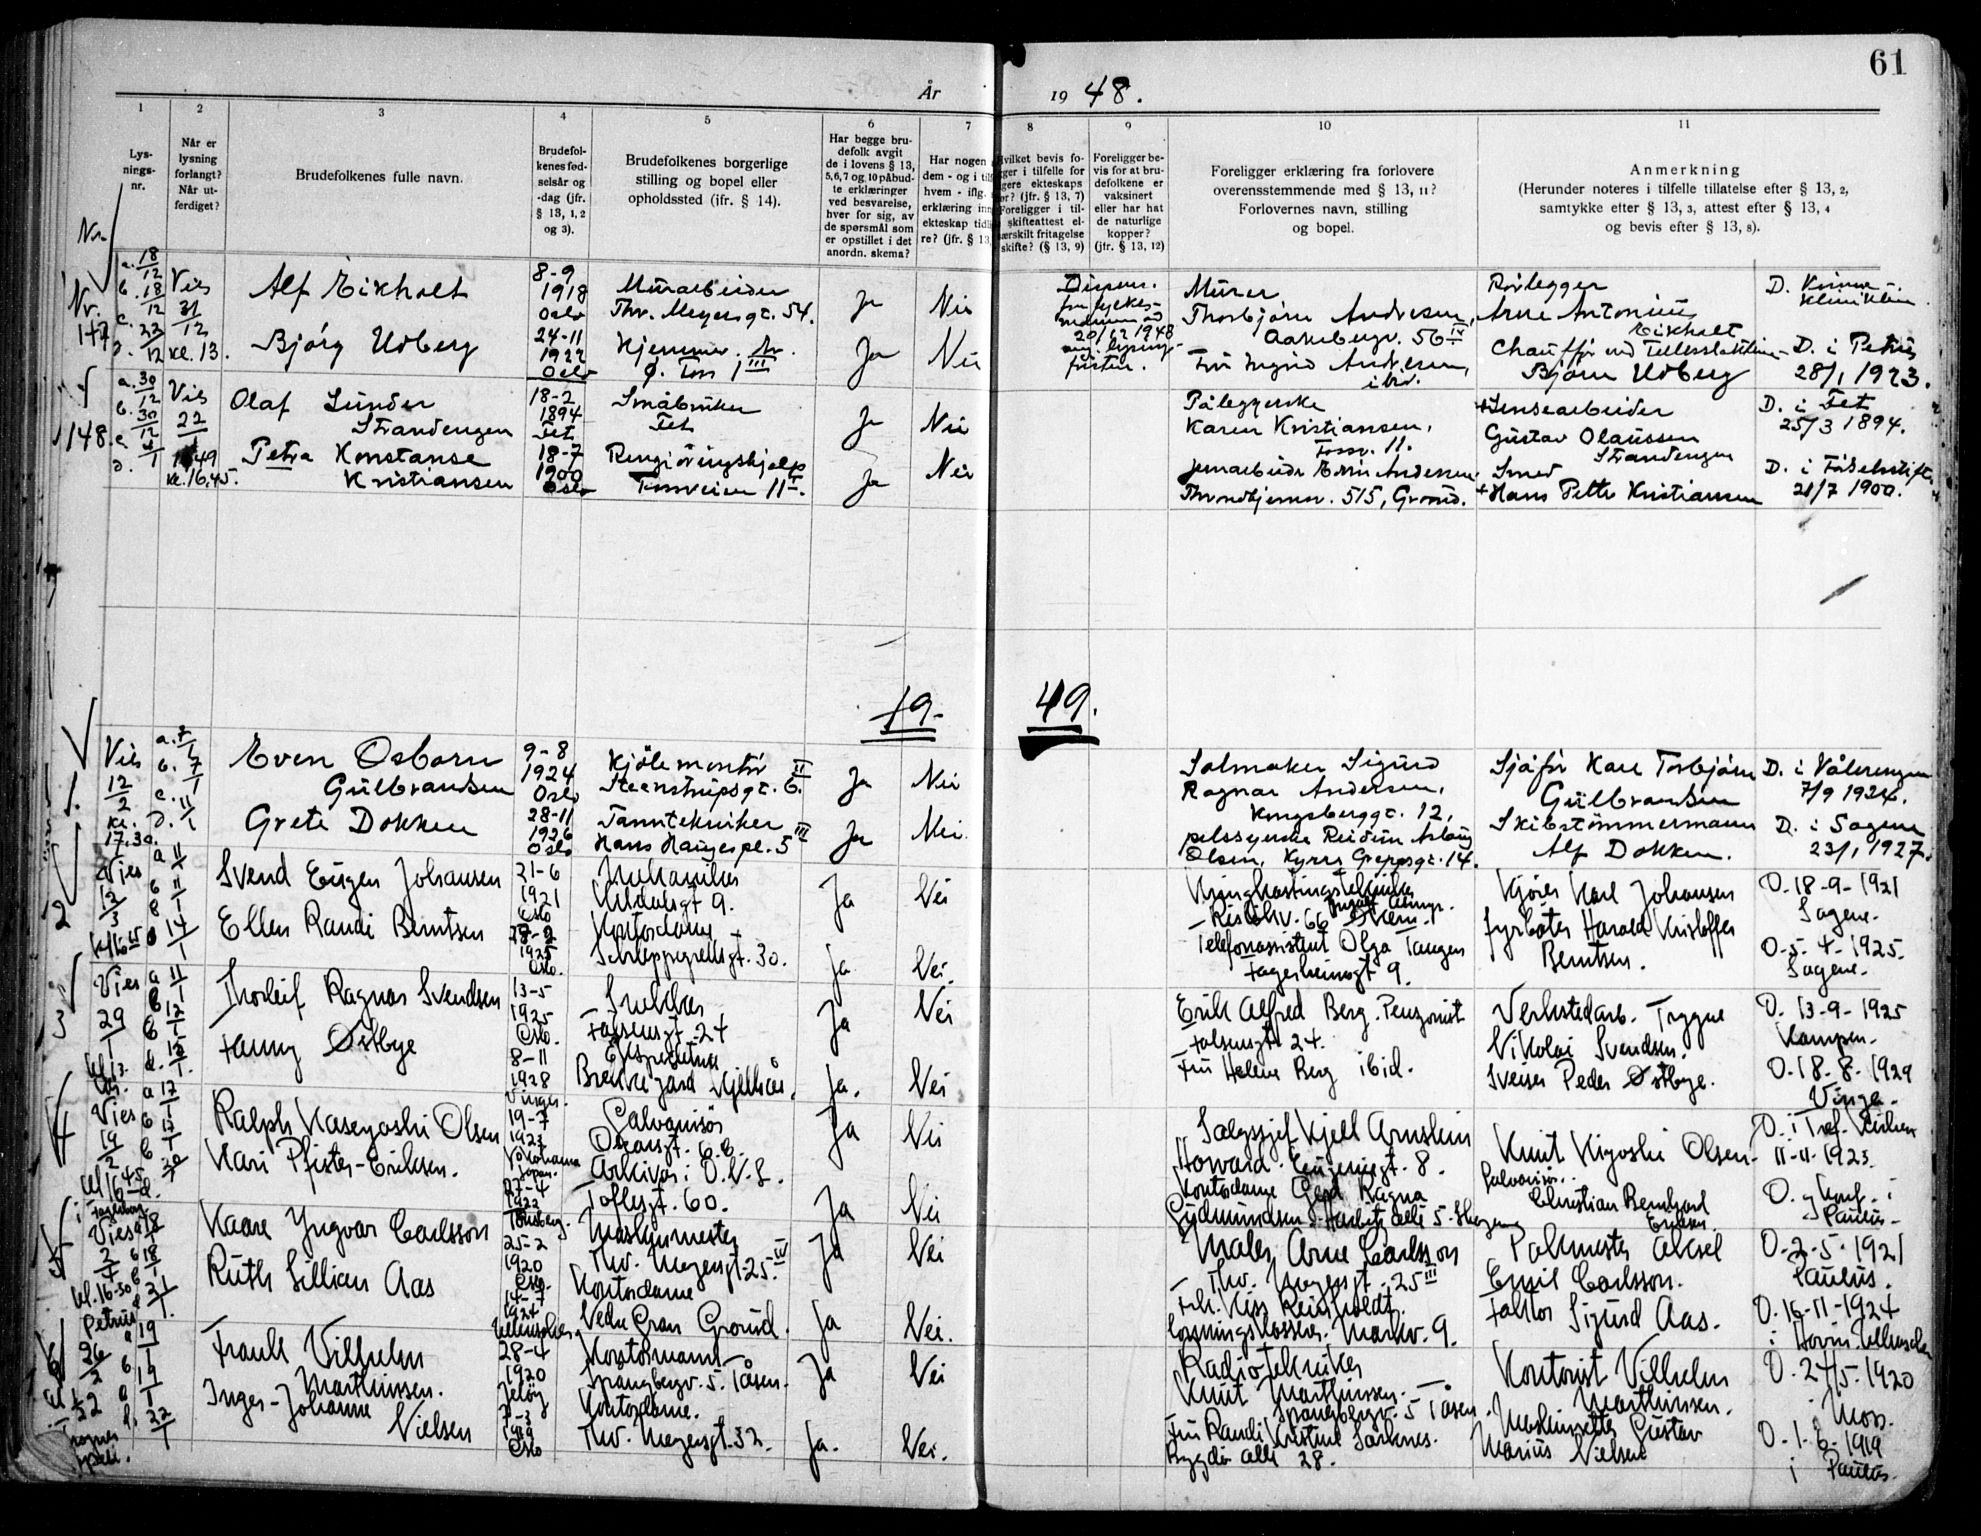 61
År 1948.
1
2
3
4
5
6
7
8
9
10
11
Lys-
nings-
nr.
Når er
lysning
forlangt?
Når ut-
ferdiget?
Brudefolkenes fulle navn.
Brudefol-
kenes fød-
selsår og
-dag (jfr.
§ 13, 1, 2
og 3).
Brudefolkenes borgerlige
stilling og bopel eller
opholdssted (ifr. § 14).
Har begge bru-
defolk avgit
de i lovens § 13,
5, 6, 7 og 10 påbud-
te erklæringer
ved besvarelse,
hver for sig, av
de spørsmål som
er opstillet i det
anordn. skema?
Har nogen
dem - og i tilf
hvem - iflg.
erklæring inn
ekteskap tidl
re? (jfr. § 13,
Hvilket bevis fo-
ger i tilfelle for
gere ekteskaps
ør? (jfr. § 13, 7)
Foreligger i til-
skifteattest el-
ærskilt fritagelse
skifte? (§ 13, 9)
Foreligger be-
vis for at bru-
defolkene er
vaksinert
eller har hat
de naturlige
kopper?
(jfr. § 13, 12)
Foreligger erklæring fra forlovere
overensstemmende med § 13, 11?
Forlovernes navn, stilling
og bopel.
Anmerkning
(Herunder noteres i tilfelle tillatelse efter § 13, 2,
samtykke efter § 13, 3, attest efter § 13, 4
og bevis efter § 13, 8).
Nr.
Nr.
147
a. 18/12
b. 18/12
c. 23/12
d.
Vies
31/12
kl. 13.
Alf Eikholt
8-9
1918
Oslo
Murarbeider
Thv. Meyersgt. 54.
Ja
Nei
Dispens.
20/12 1948
Murer
Thorbjørn Andresen,
Aakebergv. 56 IV
Rørlegger
Arne Antonius
Eikholt
D. Kvinne-
klinikken
Bjørg Udberg
24-11
1922
Oslo
Hjemmev.
Ja
Nei
Fru Ingrid Andresen,
ibid.
Chauffør ved
Bjørn Udberg
D. i Petrus
28/1 1923.
148.
a. 30/12
b. 30/12
c. 4/1
d.
Vies
22/1 49
kl. 16,45.
Olaf Sunder
Strandengen
18-2
1894
Fet
Småbruker
Fet
Ja
Nei
Påleggerske
Karen Kristiansen,
Tossv. 11.
+Lensearbeider
Gustav Olaussen
Strandengen
D. i Fet
25/3 1894.
Petra Konstanse
Kristiansen
18-7
1900
Oslo
Rengjøringshjelp
Ja
Nei
Jernarbeider Andersen
Throndhjemsv. 515, Grorud.
Smed
+Hans Petter Kristiansen
D. i Fødselsstift.
21/7 1900.
19-
49.
1.
Vies
12/2
kl.
17.30.
a. 7/1
b. 7/1
c. 11/1
d.
Even Osborn
Gulbrandsen
9-8
1924
Oslo
Kjølemontør
Steenstrupsgt. 6. II
Ja
Nei
Salmaker Sigurd
Ragnar Andersen,
Kongsberggt. 12,
Sjåfør Kare Torbjørn
Gulbrandsen
D. i Vålerengen
7/9 1924.
Grete Dokken
28-11
1926
Oslo
Tanntekniker
Hans Haugespl. 5 III
Ja
Nei
pelssyerske Reidun Aslaug
Olsen, Kyrre Greppsgt. 14.
Skibstømmermann
Alf Dokken.
D. i Sagene
23/1 1927.
2
Vies
12/3
a 11/1
b 11/1
14/1
Svend Eugen Johansen
21-6
1921
Oslo
Mekaniker
Uldalsgt 9.
Ja
Nei
Kringkastingstekniker
Kjører Karl Johansen
D. 18-9-1921
Sagene.
Ellen Randi Berntsen
1925
Oslo.
Kontordame
Schleppegrellsgt. 30.
Ja
Nei.
Telefonassistent Olga Tangen
Fagerheimsgt 9.
Fyrbøter Harald Kristoffer
Berntsen.
D-5-4-1925.
Sagene.
3
Vies
29/1
kl 13.
a 11/1
b 12/1
d. 12/1
Thorleif Ragnar Svendsen
13-5
1925
Oslo.
Snekker
Falsensgt. 24
Ja
Nei
Erik Alfred Berg. Pensjonist
Falsensgt. 24.
Verkstedarb. Trygve
Nikolai Svendsen.
D. 13-9-1925
Kampen.
Fanny Østbye
8-11
1928
Vinger.
Ekspeditrise
Brekke gård Kjelsås.
Ja.
Nei
Fru Helene Berg ibid.
Sveiser Peder Østbye.
D. 18-8-1929
Vinger.
4
Vies
19/2
a 17/1
b 17/1
20/1
Ralph Kaseyoshi Olsen
19-7
1923
Yokohama
Japan.
Galvanisør
Oscarsgt. 6.B.
Ja
Nei
Salgssjef Kjell Arnstein
Howard. Eugeniesgt. 8.
Knut Kiyoshi Olsen.
Galvanisør.
11-11-1923.
Kari Pfister-Eriksen.
27-4
1922
Tønsberg.
Arkivar i O.V.S.
Toftesgt. 60.
Ja
Nei
Kontordame Gerd Ragna
Gudmundsen. Harbitz allé 5. Skøyen
Christian Bernhard
Eriksen.
Paulus.
5
Vies
2/4
kl. 16-30
Petrus
a 18/1
b 18/1
21/1.
Kaare Yngvar Carlsson
25-2
1920
Oslo.
Maskinmester
Thv. Meyersgt. 25. IV
Ja
Nei
Maler Arne Carlsson
Thv. Meyersgt. 25 III
Pakmester Aksel
Emil Carlsson.
D-2-5-1921
Paulus.
Ruth Lillian Aas
1924
Kontordame
Nedre Gran Grorud.
Ja
Nei.
Frk. Kiss Reinholdt.
Markv. 9.
Faktor Sigurd Aas.
D. 16-11-1924
6
26/2
a 19/1
b 19/1
d. 22/1
Frank Vilhelm
Marthinsen.
28-4
1920
Jeløy
Kontormann
Spångbergv. 5. Tåsen.
Ja
Nei
Radiotekniker
Knut Marthinsen.
Spångbergv. 5 Tåsen.
Kontorist Vilhelm
Marthinsen.
D. 24/5-1920
i Moss.
Inger-Johanne
Nielsen
1919
Oslo
Kontordame.
Thv. Meyersgt. 32.
Ja.
Nei.
Fru Randi Kristine
Bygdø allé 28.
Maskinsetter Gustav
Marius Nielsen
D-1-6-1919
i Paulus.